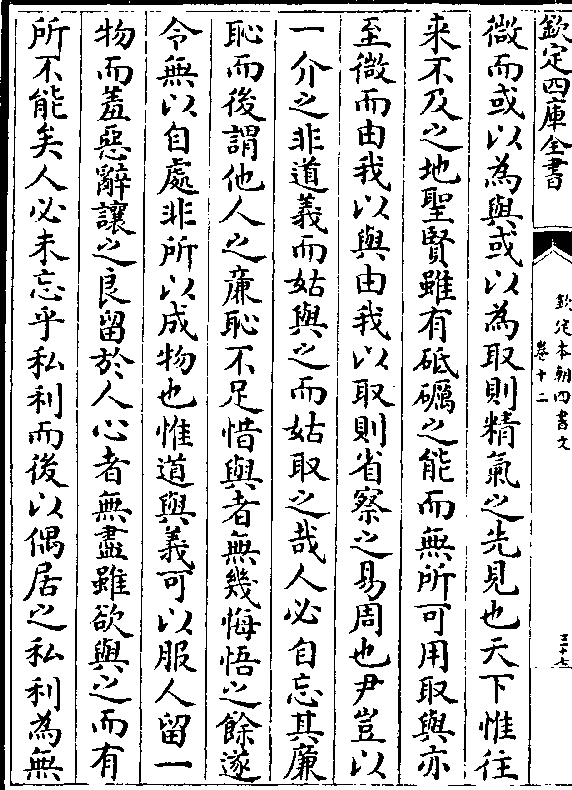 欽定四庫全書
欽定本朝四書文
卷十二
三十七
微而或以為與或以為取則精氣之先見也天下惟往
来不及之地聖賢雖有砥礪之能而無所可用取與亦
至微而由我以與由我以取則省察之易周也尹豈以
一介之非道義而姑與之而姑取之哉人必自忘其廉
恥而後謂他人之廉恥不足惜與者無幾悔悟之餘遂
令無以自處非所以成物也惟道與義可以服人留一
物而羞惡辭讓之良留於人心者無盡雖欲與之而有
所不能矣人必未忘乎私利而後以偶居之私利為無